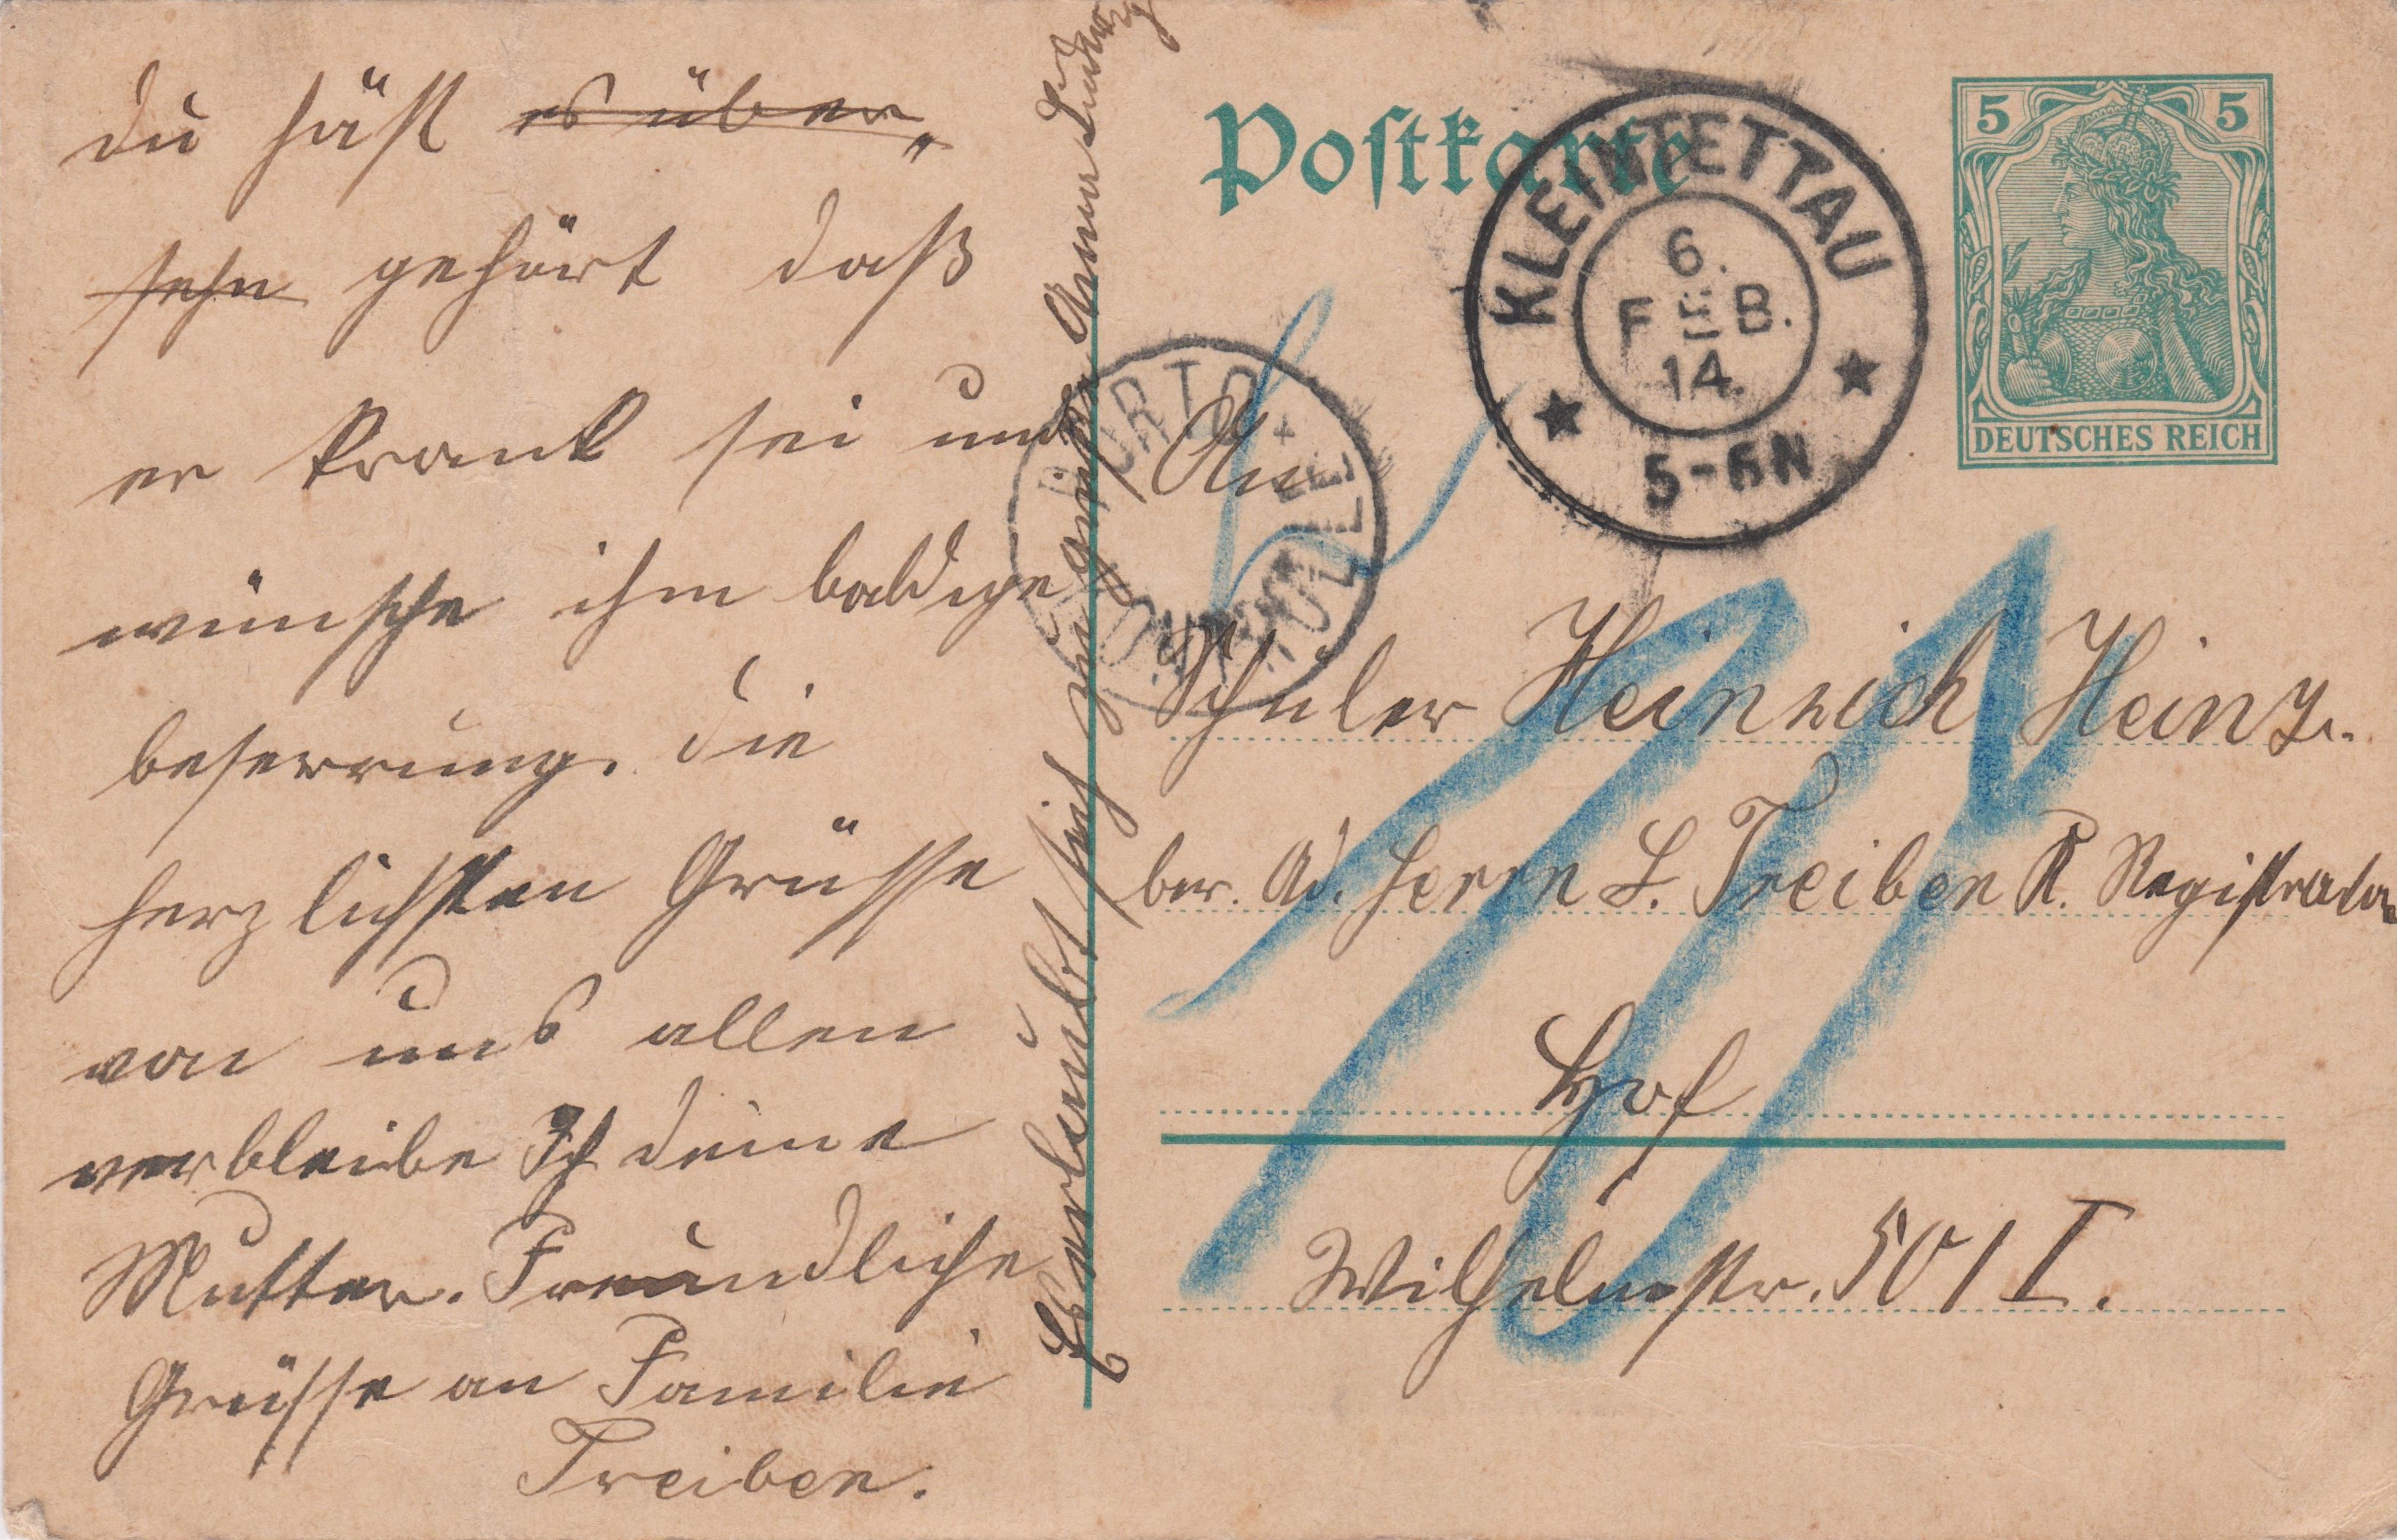 du häst es über„
sehn gehört daß
er krank sei und
wünsche ihm baldige
beserrung. die
herzlichsten Grüsse
von uns allen
verbleibe Ich deine
Mutter. Freundliche
Grüsse an Familie
Treiben.
erlaubt sich zu
Anna
Postkarte
KLEINTETTAU
6.
FEB.
14.
5-6N
5 5
DEUTSCHES REICH
PORTO
An
Schüler Heinrich Heinz.
ber. Ad. Herrn L. Treiben K. Registrator
Hof
Wilhelmstr. 50/I.